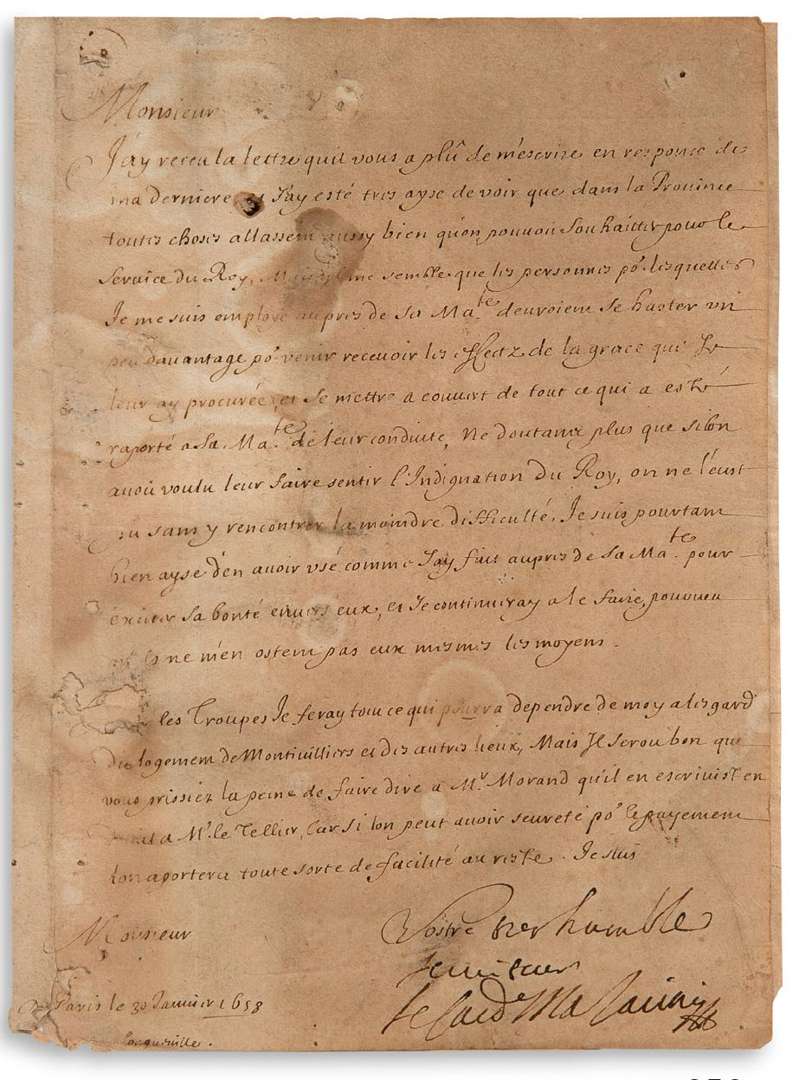 Monsieur
J'ay receu la lettre quil vous a plû de m'escrire en response de
ma derniere et J'ay esté tres ayse de voir que dans la Province
toutes choses allassent aussy bien qu'on pouvoit souhaitter pour le
service du Roy, Mais Il me semble que les personnes po.r lesquelles
Je me suis employé aupres de Sa Ma.te devroient se haster un
peu davantage po.r venir recevoir les effectz de la grace que Je
leur ay procurée et se mettre a couvert de tout ce qui a esté
raporté a Sa Ma.te de leur conduite, Ne doutant plus que si lon
avoit voulu leur faire sentir l'Indignation du Roy, on ne l'eust
pu sans y rencontrer la moindre difficulté. Je suis pourtant
bien ayse d'en avoir usé comme J'ay fait aupres de Sa Ma.te pour
exciter sa bonté envers eux, et Je continueray a le faire, pourveu
ne m'en ostent pas eux mesmes les moyens.
les Troupes Je feray tout ce qui pourra dependre de moy a l'esgard
du logement de Montivilliers et des autres lieux, Mais Il seroit bon que
vous prissiez la peine de faire dire a M.r Morand qu'il en escrivist en
a M.r le Tellier, Car si lon peut avoir seureté po.r le payement
lon aportera toute sorte de facilité au reste. Je suis
Monsieur
Vostre tres humble
serviteur
le Card.l Mazarini
Paris le 30 Janvier 1658
Longueville.